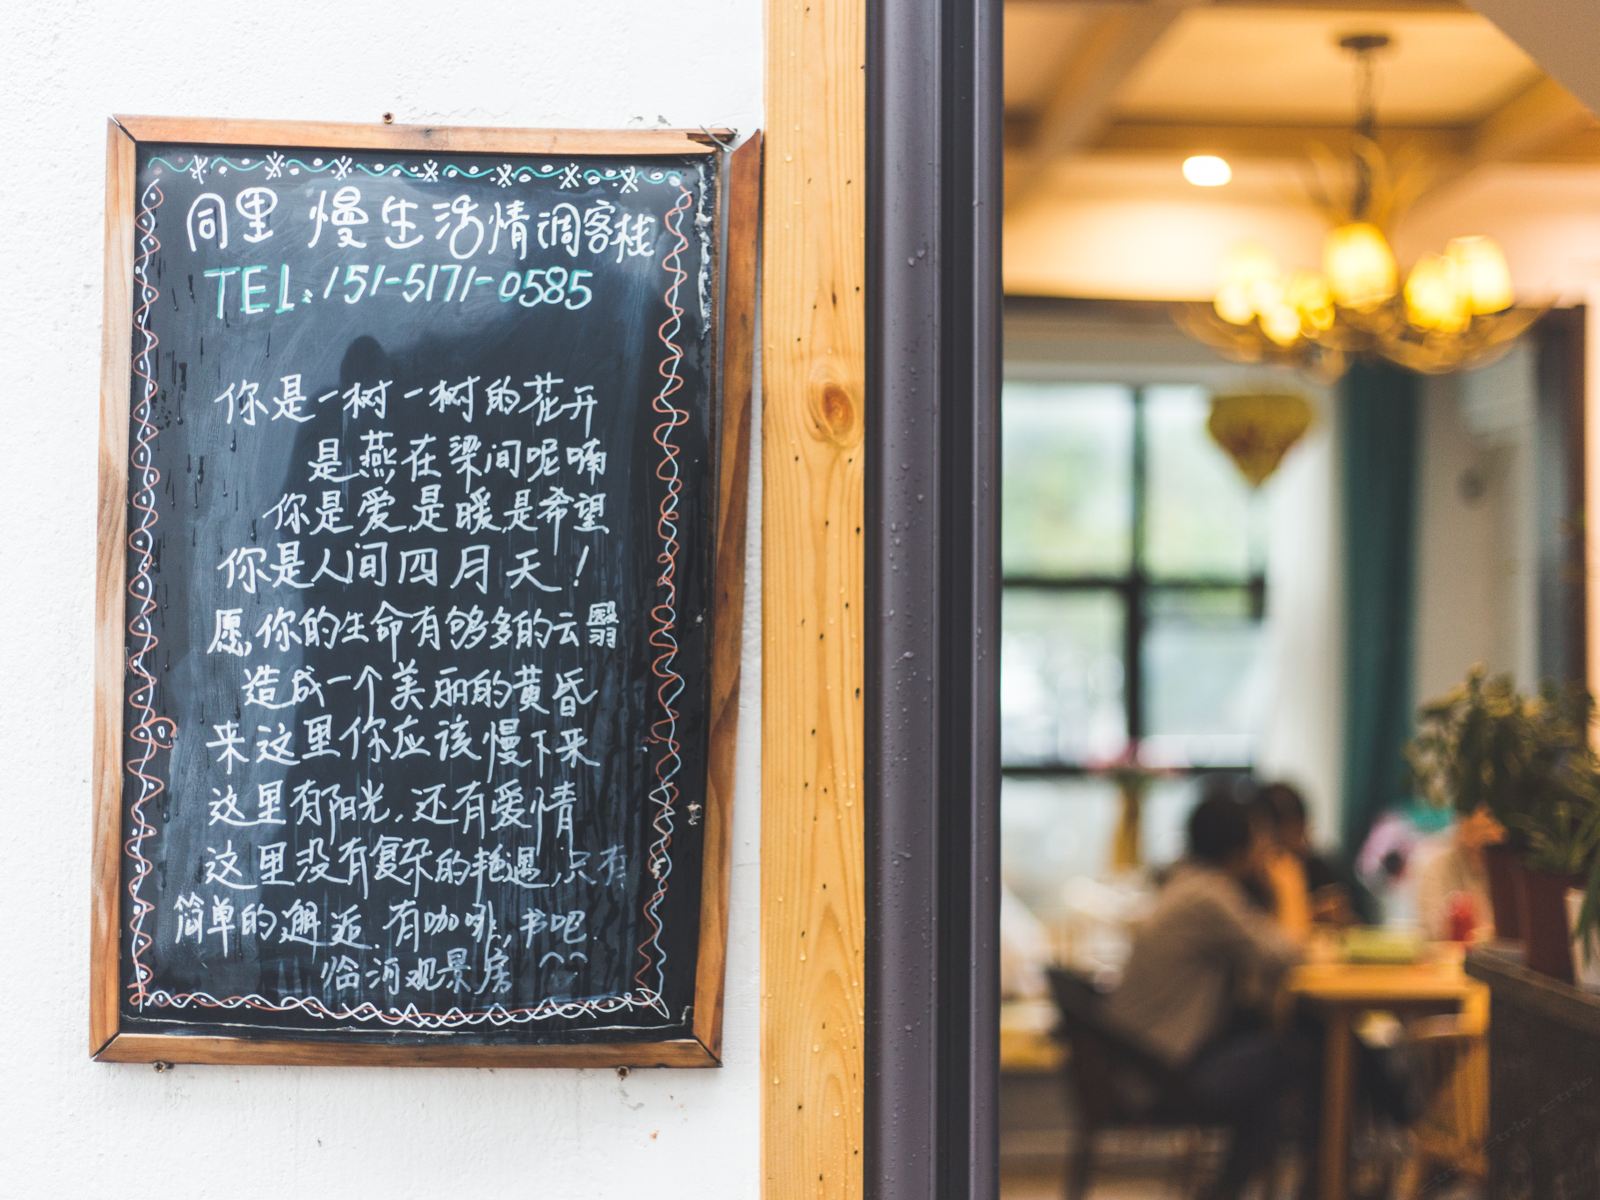 同里 慢生活情调客栈
TEL:151-5171-0585
你是一树一树的花开
是燕在梁间呢喃
你是爱,是暖,是希望
你是人间四月天!
愿你的生命有够多的云翳
造成一个美丽的黄昏
来这里你应该慢下来
这里有阳光,还有爱情
这里没有复杂的艳遇,只有
简单的邂逅.有咖啡,书吧.
临河观景房 ^^